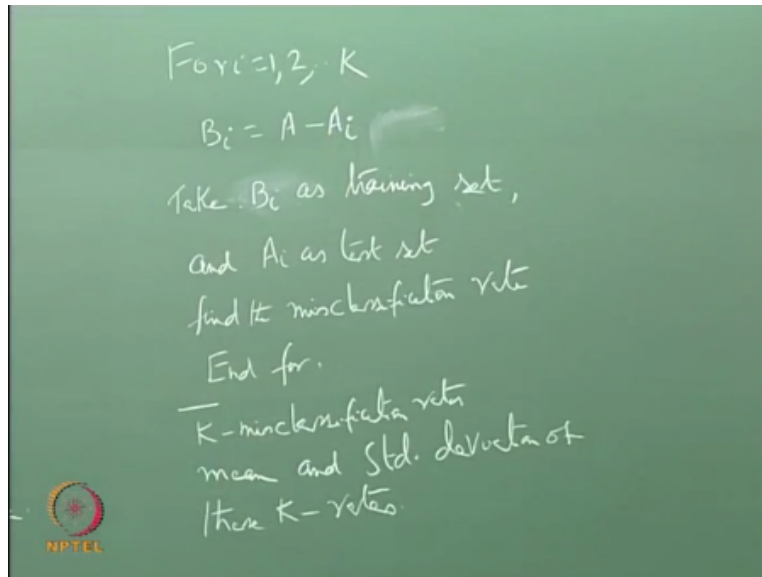 For i=1,2,.. K
Bi = A - Ai
Take Bi as training set,
and Ai as test set
find the misclassification rate
End for.
K-misclassification rates
mean and Std. deviation of
these K-rates.
NPTEL